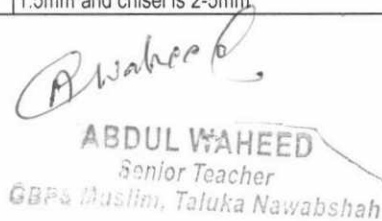 1.5mm and chisel is 2-5mm
Awaheed
ABDUL WAHEED
Senior Teacher
GBPS Muslim, Taluka Nawabshah